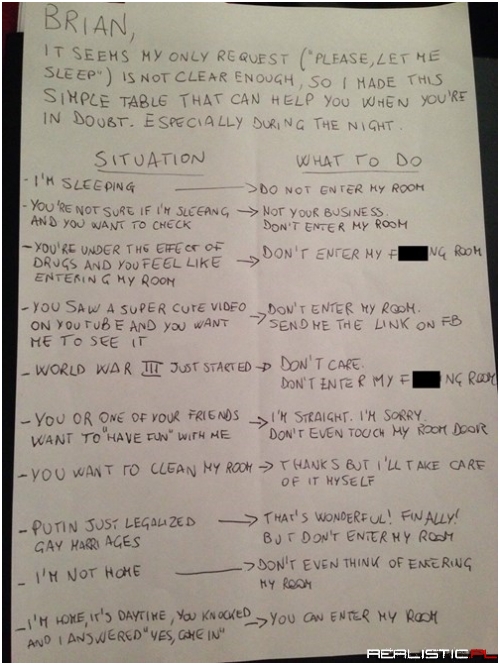 BRIAN,
IT SEEMS MY ONLY REQUEST ("PLEASE, LET ME
SLEEP") IS NOT CLEAR ENOUGH, SO I MADE THIS
SIMPLE TABLE THAT CAN HELP YOU WHEN YOU'RE
IN DOUBT. ESPECIALLY DURING THE NIGHT.
SITUATION
WHAT TO DO
- I'M SLEEPING
→ DO NOT ENTER MY ROOM
- YOU'RE NOT SURE IF I'M SLEEPING
AND YOU WANT TO CHECK
→ NOT YOUR BUSINESS.
DON'T ENTER MY ROOM
- YOU'RE UNDER THE EFFECT OF
DRUGS AND YOU FEEL LIKE
ENTERING MY ROOM
→ DON'T ENTER MY F NG ROOM
- YOU SAW A SUPER CUTE VIDEO
ON YOUTUBE AND YOU WANT
ME TO SEE IT
→ DON'T ENTER MY ROOM.
SEND ME THE LINK ON FB
- WORLD WAR III JUST STARTED
→ DON'T CARE.
DON'T ENTER MY F NG ROOM
- YOU OR ONE OF YOUR FRIENDS
WANT TO "HAVE FUN" WITH ME
→ I'M STRAIGHT. I'M SORRY.
DON'T EVEN TOUCH MY ROOM DOOR
- YOU WANT TO CLEAN MY ROOM
→ THANKS BUT I'LL TAKE CARE
OF IT MYSELF
- PUTIN JUST LEGALIZED
GAY MARRIAGES
→ THAT'S WONDERFUL! FINALLY!
BUT DON'T ENTER MY ROOM
- I'M NOT HOME
→ DON'T EVEN THINK OF ENTERING
MY ROOM
- I'M HOME, IT'S DAYTIME, YOU KNOCKED
AND I ANSWERED "YES, COME IN"
→ YOU CAN ENTER MY ROOM
REALISTIC.PL